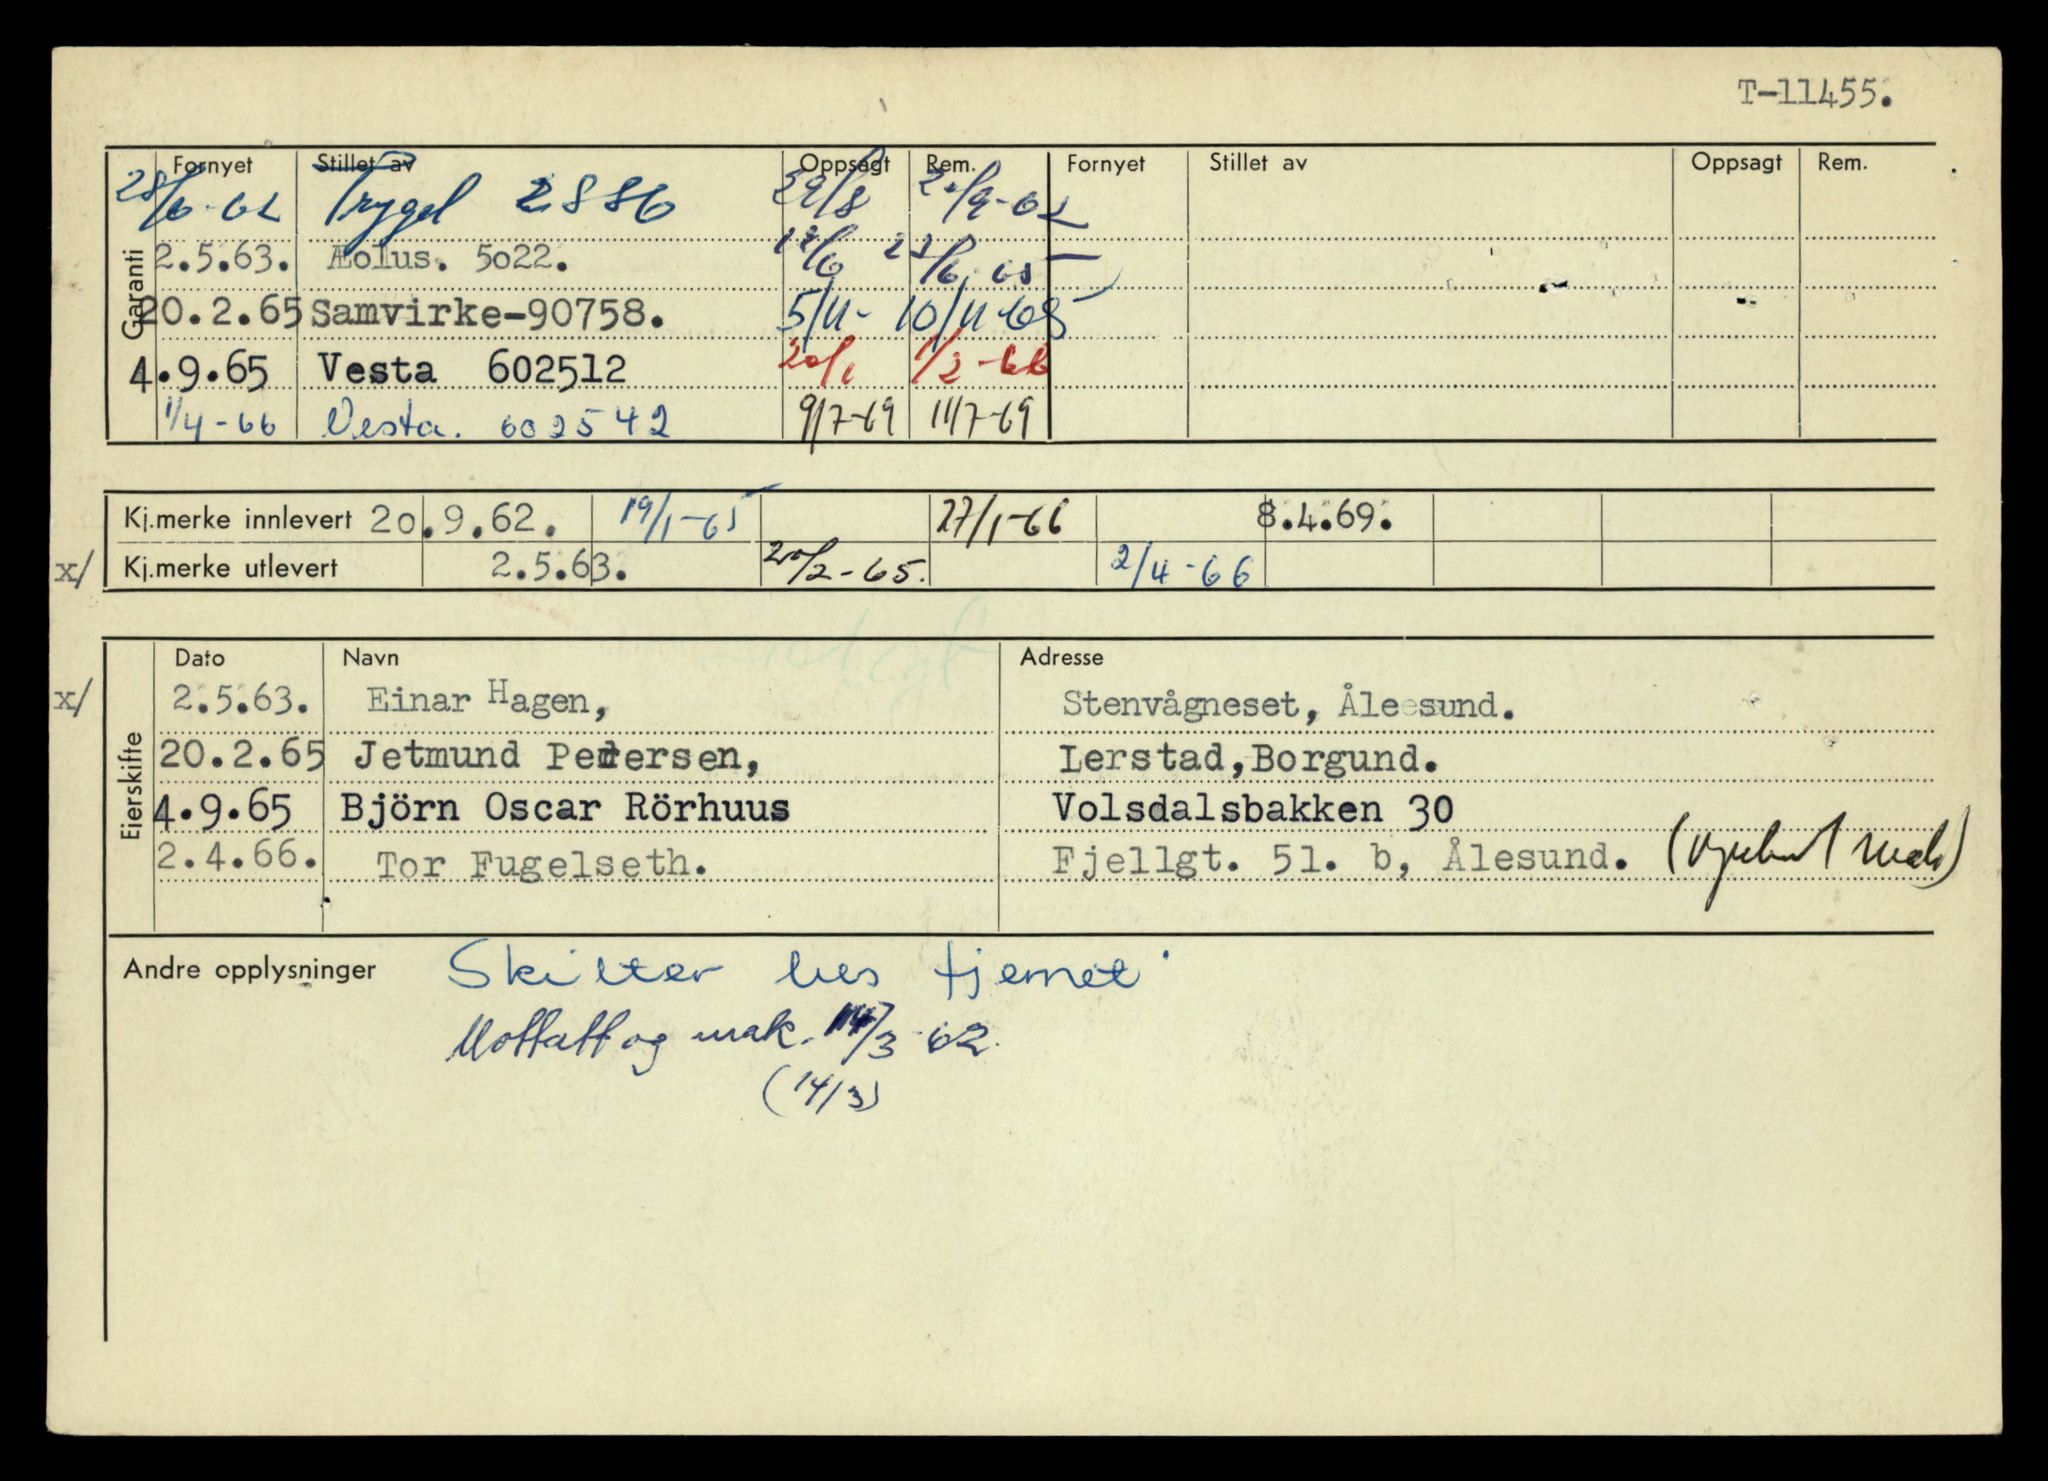 T-11455.
Garanti
Fornyet Stillet av Oppsagt Rem. Fornyet Stillet av Oppsagt Rem.
28/6-62 Trygd 2886 29/8 20/9-62
2.5.63. Æolus. 5022. 23/6.65
20.2.65 Samvirke-90758. 5/11- 10/11-65
4.9.65 Vesta 602512 20/1 1/2-66
1/4-66 Vesta. 602542 9/7-69 11/7-69
Kj.merke innlevert 20.9.62. 19/1-65 27/1-66 8.4.69.
x/ Kj.merke utlevert 2.5.63. 20/2-65. 2/4-66
Eierskifte
Dato Navn Adresse
x/ 2.5.63. Einar Hagen, Stenvågneset, Ålesund.
20.2.65 Jetmund Pedersen, Lerstad,Borgund.
4.9.65 Björn Oscar Rörhuus Volsdalsbakken 30
2.4.66. Tor Fugelseth. Fjellgt. 51. b, Ålesund.
Andre opplysninger Skilter bes fjernet
Mottatt og mak. 14/3-62.
(14/3)